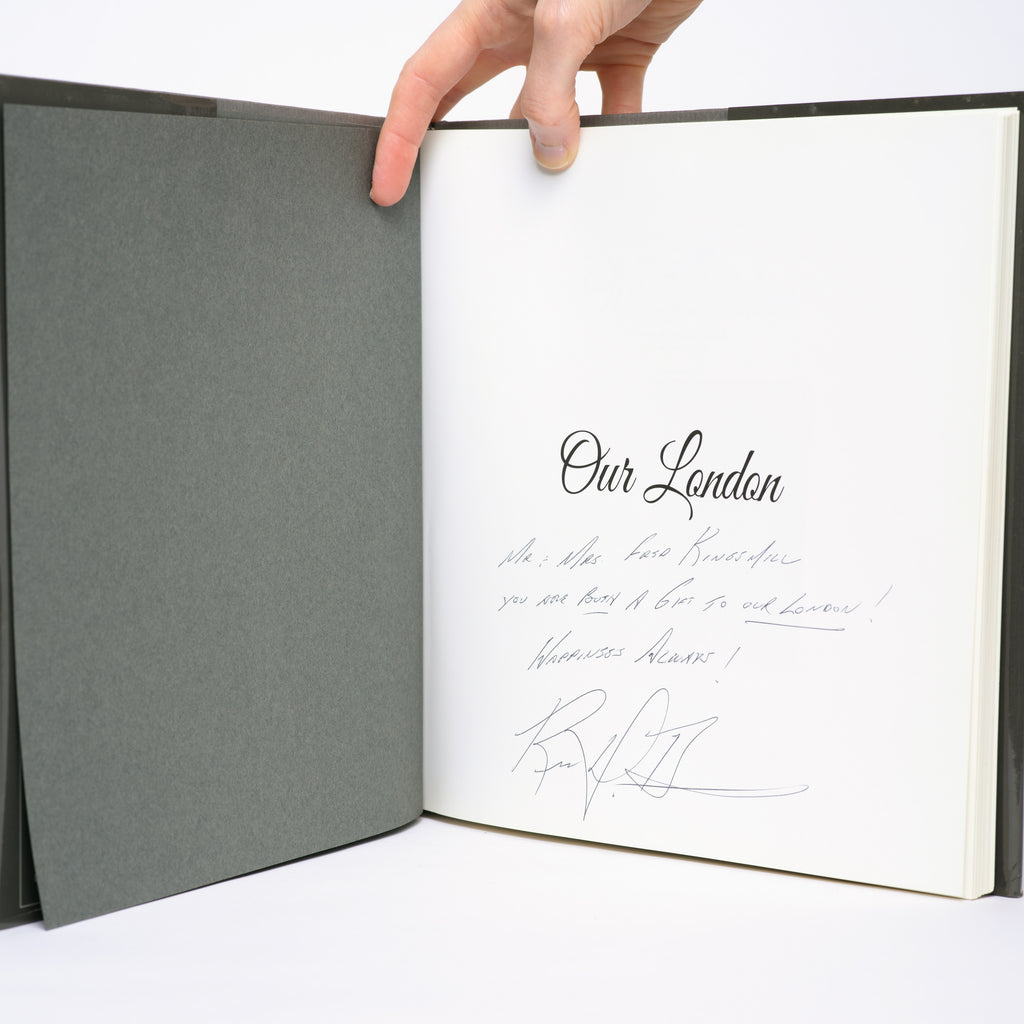 Our London
Mr. : Mrs. Fred Kingsmill
you are both a Gift to our London!
Happiness Always!